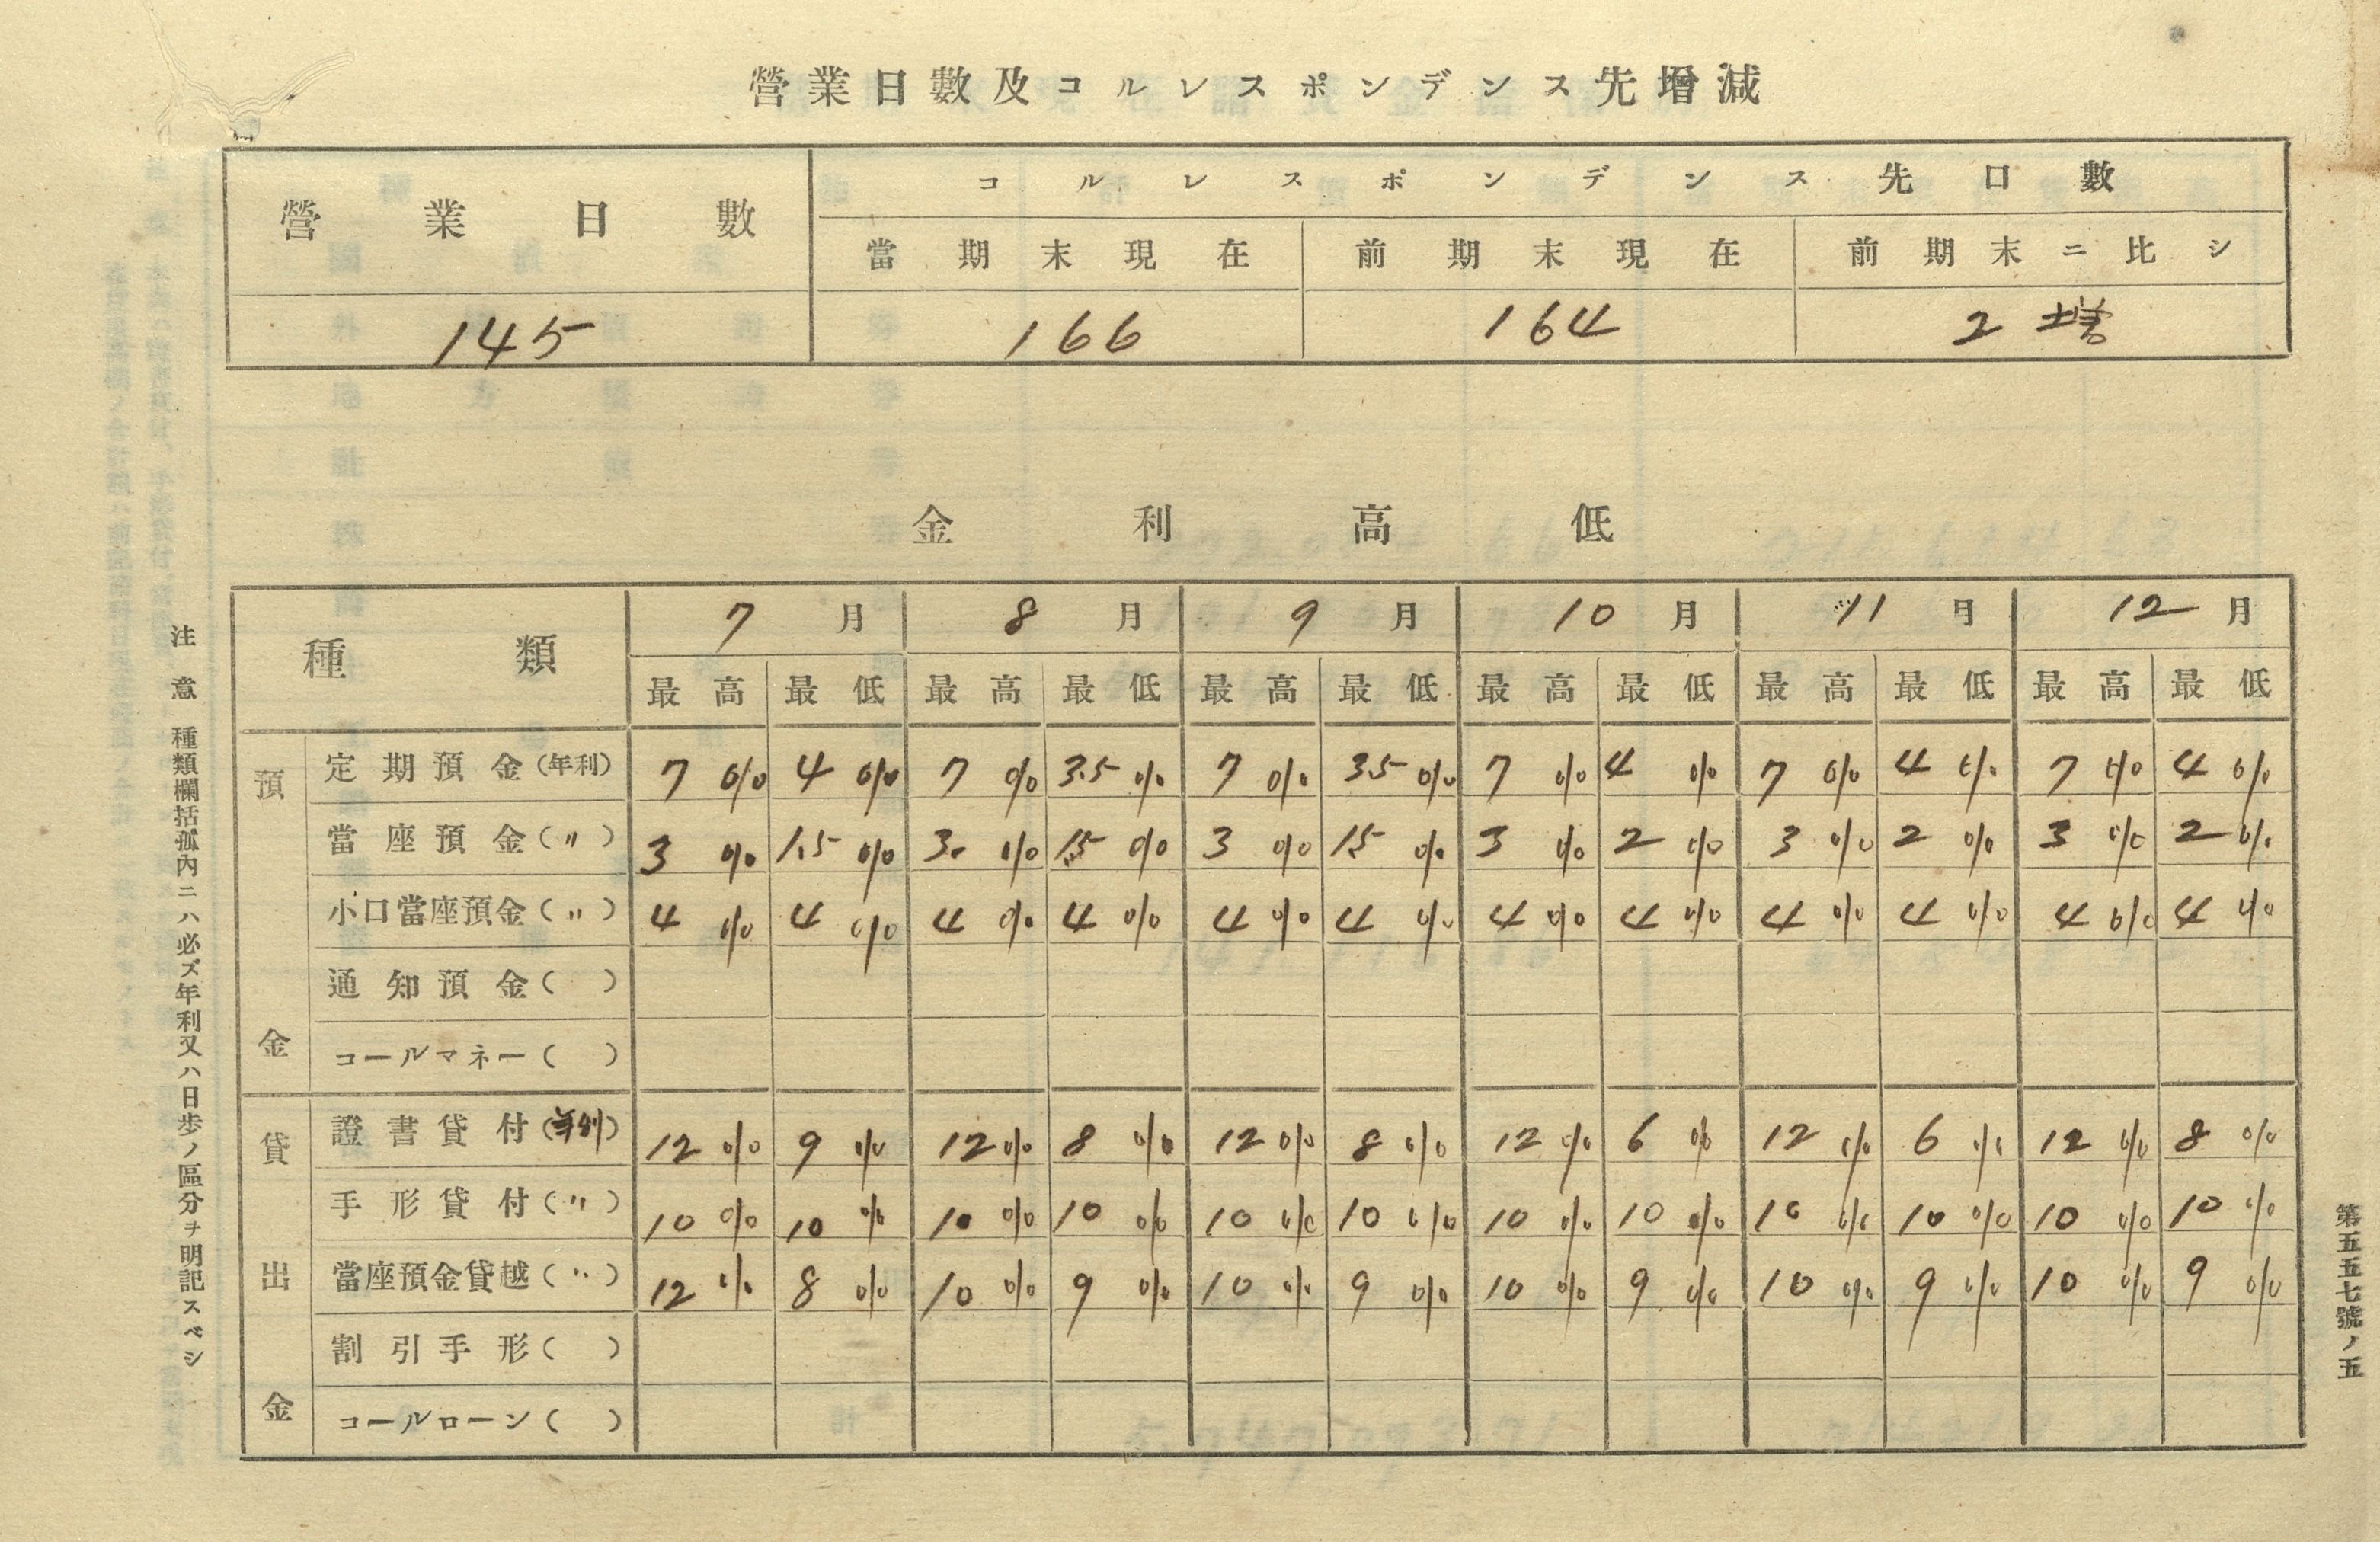 營業日數及コルレスポンデンス先增減
營業日數 コルレスポンデンス先口數
當期末現在 前期末現在 前期末ニ比シ
145 166 164 2 増
金利高低
種類 7月 8月 9月 10月 11月 12月
最高 最低 最高 最低 最高 最低 最高 最低 最高 最低 最高 最低
預金
定期預金(年利) 7% 4% 7% 3.5% 7% 3.5% 7% 4% 7% 4% 7% 4%
當座預金(〃) 3% 1.5% 3.% 1.5% 3% 1.5% 3% 2% 3% 2% 3% 2%
小口當座預金(〃) 4% 4% 4% 4% 4% 4% 4% 4% 4% 4% 4% 4%
通知預金( )
コールマネー( )
貸出金
證書貸付(年利) 12% 9% 12% 8% 12% 8% 12% 6% 12% 6% 12% 8%
手形貸付(〃) 10% 10% 10% 10% 10% 10% 10% 10% 10% 10% 10% 10%
當座預金貸越(〃) 12% 8% 10% 9% 10% 9% 10% 9% 10% 9% 10% 9%
割引手形( )
コールローン( )
注意 種類欄括弧內ニハ必ズ年利又ハ日步ノ區分ヲ明記スベシ
第五五七號ノ五